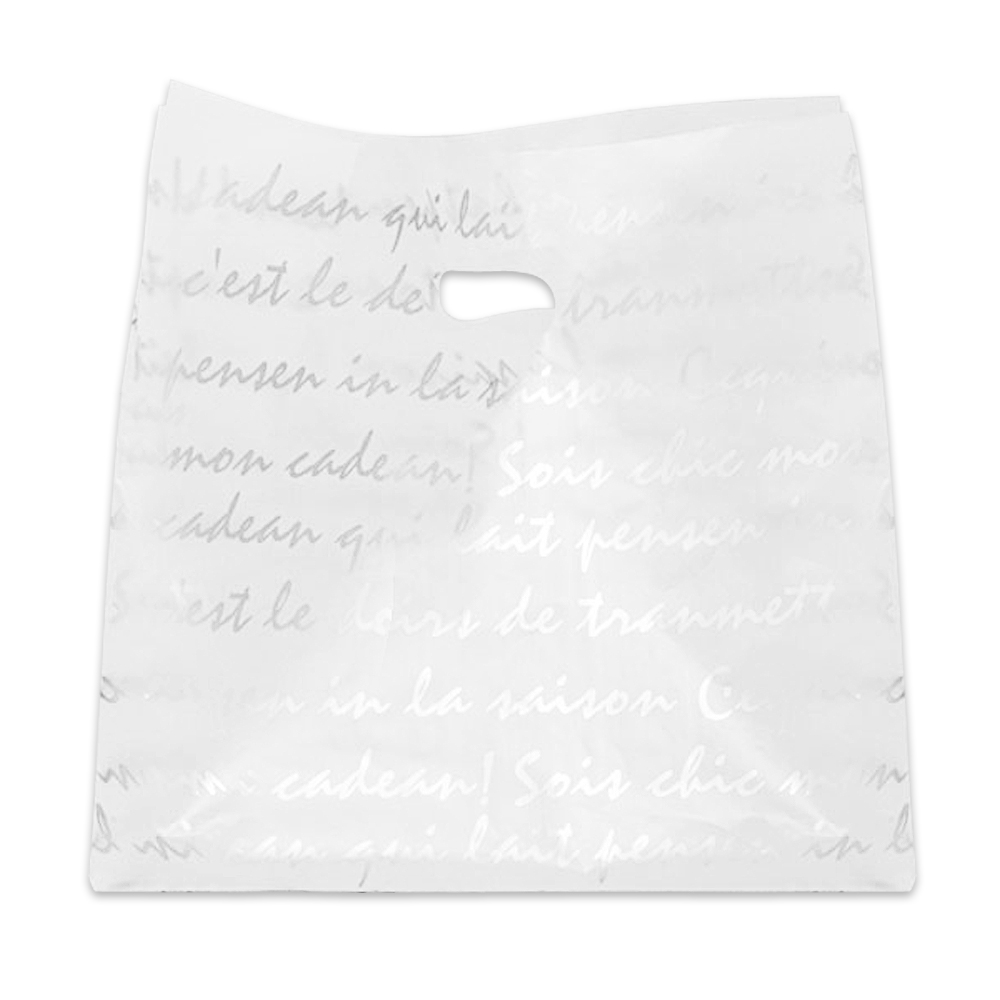 cadean qui lait pensen in
c'est le de tranmett
pensen in la saison Cequi
mon cadean! Sois chic mo
cadean qui lait pensen in
c'est le doirs de tranmett
in la saison Ce
cadean! Sois chic m
ean qui lait pensen in l